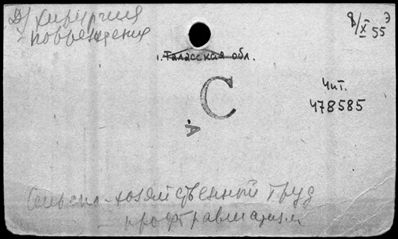 В/ хирургия
- повреждения
8/X 55 Э
г. Таласская обл.
С
А
Чит.
478585
Сельско-хозяйственной труд
- профтравматизм